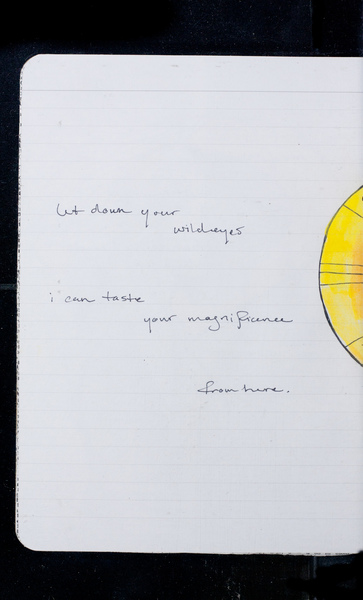 let down your
wild eyes
i can taste
your magnificence
from here.